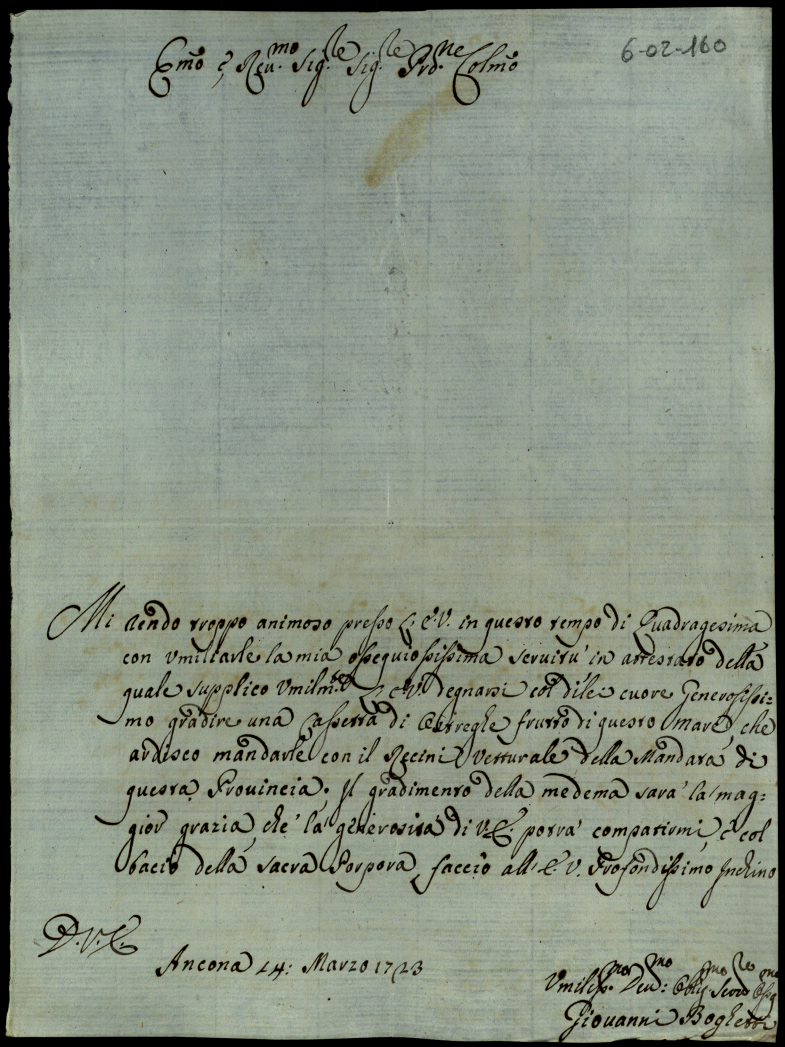 6-02-160
Emo e Reu.mo Sig.re Sig.re Prd.ne Colmo
Mi rendo troppo animoso presso L'E.V. in questo tempo di Quadragesima
con vmiliarle la mia ossequiosissima seruitù in attestato della
quale supplico Vmilm.te L'E.V. degnarsi col di lei cuore Generosissi=
mo gradire una Cassetta di Ostreghe frutto di questo mare, che
ardisco mandarle con il Recini Vetturale della Mandata di
questa Prouincia. Il gradimento della medema sarà la mag=
gior grazia, che la generosità di V.E. potrà compatirmi, e col
bacio della sacra Porpora faccio all'E.V. Profondissimo Inchino
D.V.E.
Ancona 24: Marzo 1723
Vmiliss.mo Deu:mo Obligmo Serure
Giouanni Boghetti